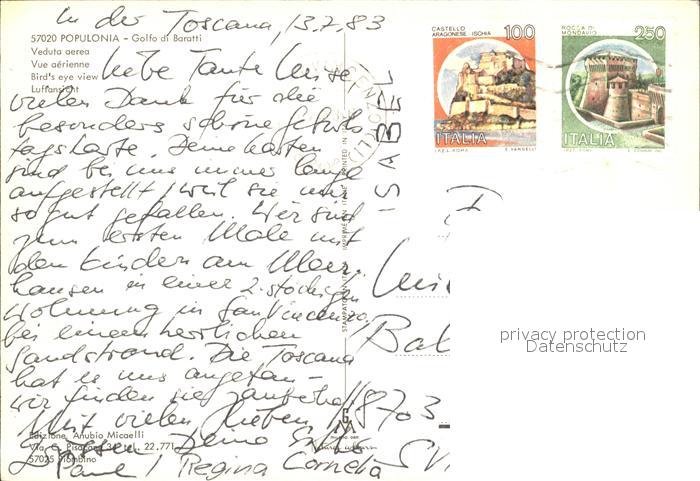 In der Toscana, 13.7.83
57020 POPULONIA - Golfo di Baratti
Veduta aerea
Vue aérienne
Bird's eye view
Luftansicht
Liebe Tante Luise
vielen Dank für die
besonders schöne Geburts-
tagskarte. Deine Karten
sind bei uns immer lange
aufgestellt, weil sie uns
so gut gefallen. Wir sind
zum ersten Male mit
den Kindern am Meer,
hausen in einer 2-stöckigen
Wohnung in San Vincenzo
bei einem herrlichen
Sandstrand. Die Toscana
hat es uns angetan -
wir finden sie zauberhaft
Mit vielen lieben
Grüssen Deine
Paul, Regina Cornelia
Edizione Anubio Micaelli
Via G. Pisacane 34 tel. 22.771
57025 Piombino
CASTELLO
ARAGONESE - ISCHIA
100
ITALIA
I.P.Z.S. ROMA
E. VANGELLI
ROCCA DI
MONDAVIO
250
ITALIA
I.P.Z.S. ROMA
8703
privacy protection
Datenschutz